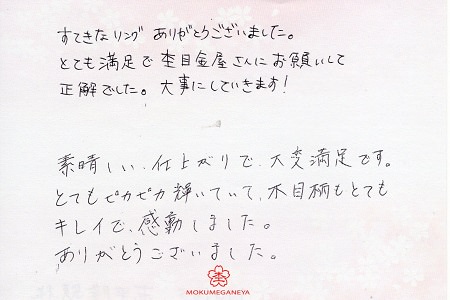 すてきなリング ありがとうございました。
とても満足で杢目金屋さんにお願いして
正解でした。大事にしていきます!
素晴しい、仕上がりで、大変満足です。
とてもピカピカ輝いていて、木目柄もとても
キレイで、感動しました。
ありがとうございました。
杢
MOKUMEGANEYA